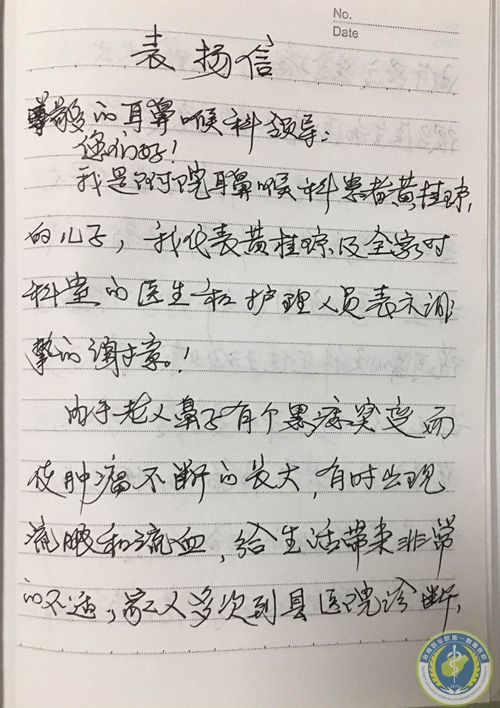 No.
Date
表扬信
尊敬的耳鼻喉科领导:
您们好!
我是附院耳鼻喉科患者黄桂琼,
的儿子,我代表黄桂琼及全家对
科室的医生和护理人员表示诚
挚的谢意!
由于老人鼻子有个黑痣突变而
使肿瘤不断的长大,有时出现
流脓和流血,给生活带来非常
的不适,家人多次到县医院诊断,